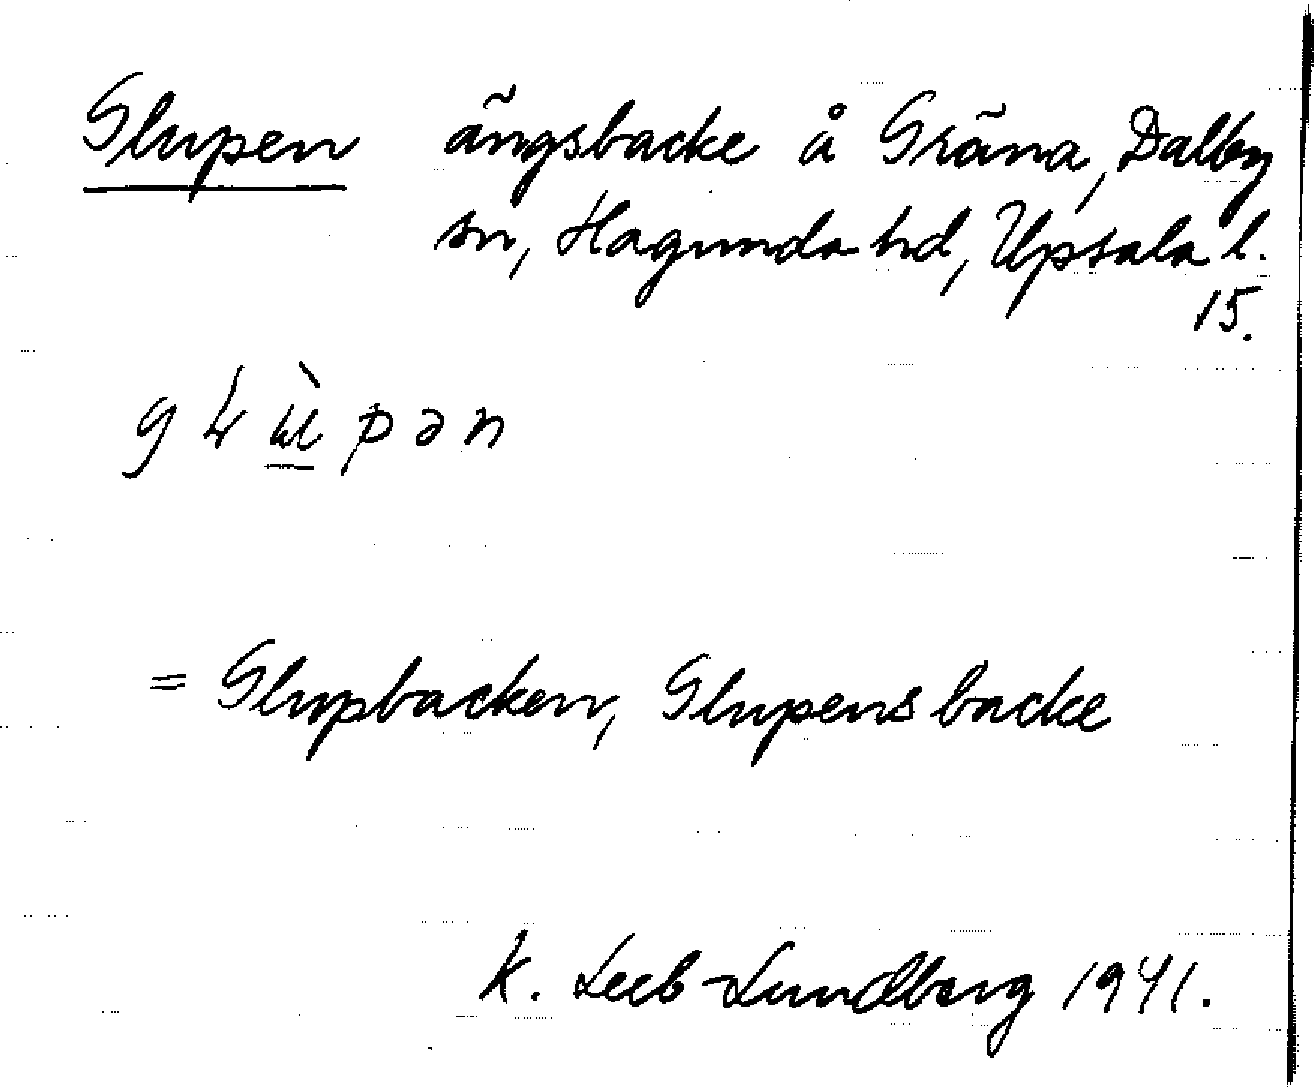 Glupen ängsbacke å Gräna, Dalby
sn, Hagunda hd, Upsala l.
15.
= Glupbacken, Glupens backe
K. Leeb-Lundberg 1941.